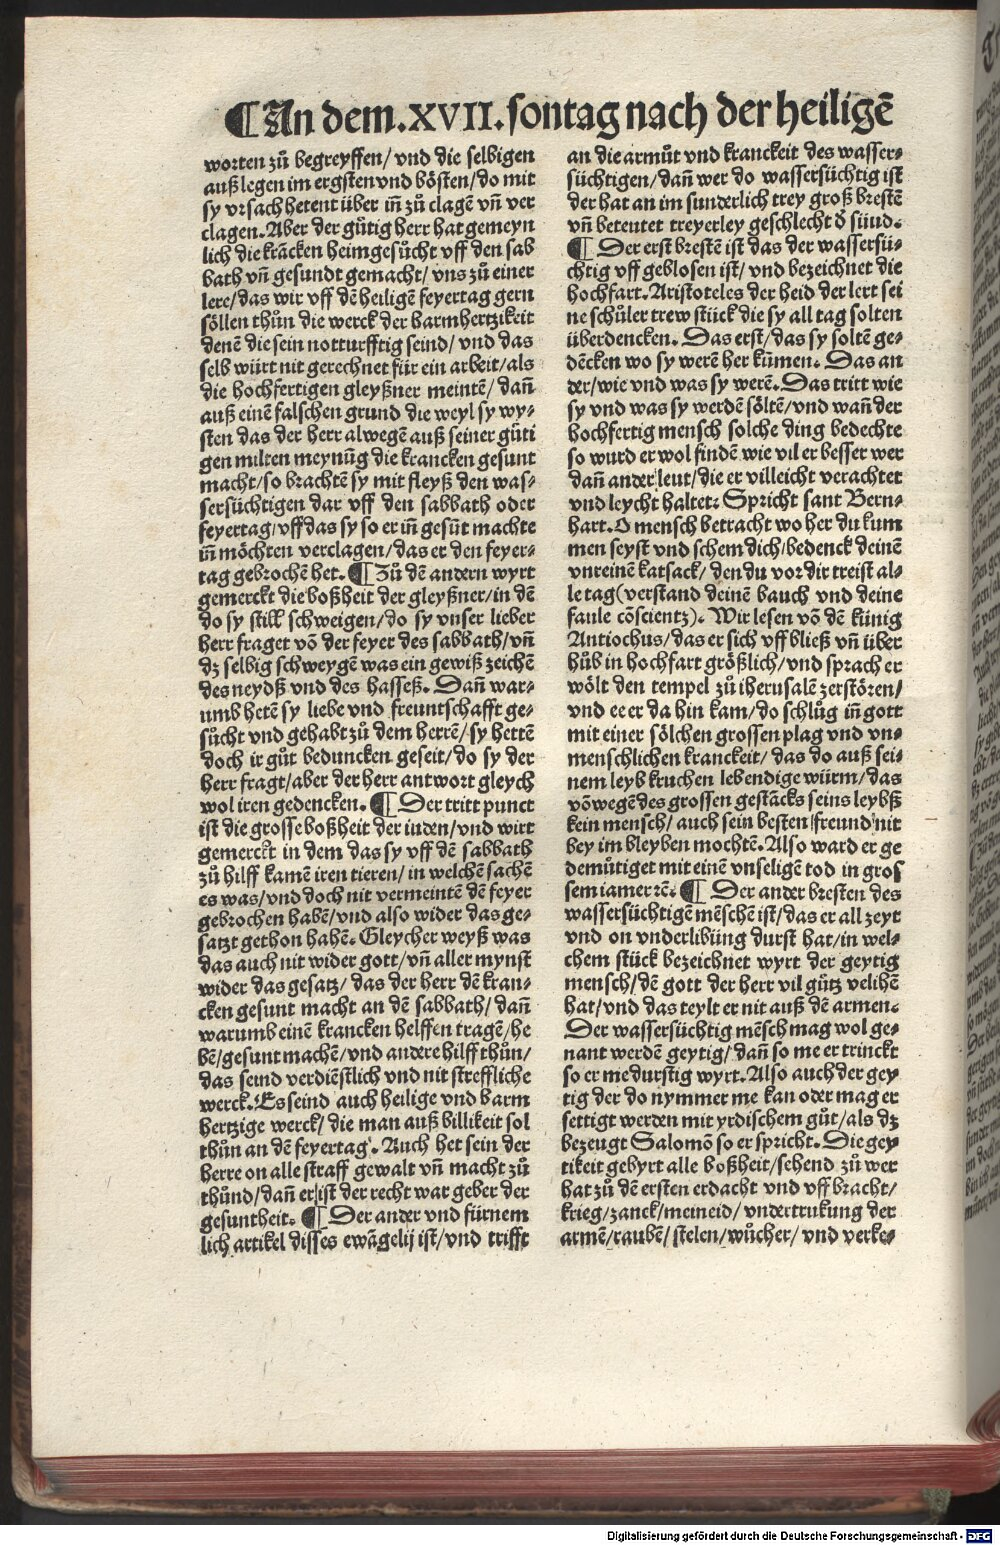 ¶An dem.XVII.sontag nach der heiligē
worten zů begreyffen/vnd die selbigen
außlegen im ergsten vnd bösten/do mit
sy vrsach hetent über in̄ zů clagē vn̄ ver
clagen.Aber der gůtig herr hat gemeyn
lich die krācken heimgesůcht vff den sab
bath vn̄ gesundt gemacht/vns zů einer
lere/das wir vff dē heiligē feyertag gern
söllen thůn die werck der barmhertzikeit
denē die sein notturfftig seind/vnd das
selb würt nit gerechnet für ein arbeit/als
die hochfertigen gleyßner meintē/dan̄
auß einē falschen grund die weyl sy wy⸗
sten das der herr alwegē auß seiner gůti
gen milten meynūg die krancken gesunt
macht/so brachtē sy mit fleyß den was⸗
sersüchtigen dar vff den sabbath oder
feyertag/vff das sy so er in̄ gesūt machte
in̄ möchten verclagen/das er den feyer⸗
tag gebrochē het.¶Zů dē andern wyrt
gemerckt die boßheit der gleyßner/in dē
do sy still schweigen/do sy vnser lieber
herr fraget vō der feyer des sabbath/vn̄
dz selbig schweygē was ein gewiß zeichē
des neydß vnd des hasseß. Dan̄ war⸗
umb hetē sy liebe vnd freuntschafft ge⸗
sůcht vnd gehabt zů dem herrē/sy hettē
doch ir gůt beduncken geseit/do sy der
herr fragt/aber der herr antwort gleych
wol iren gedencken.¶Der tritt punct
ist die grosse boßheit der iuden/vnd wirt
gemerckt in dem das sy vff dē sabbath
zů hilff kamē iren tieren/in welchē sachē
es was/vnd doch nit vermeintē dē feyer
gebrochen habē/vnd also wider das ge⸗
satzt gethon habē. Gleycher weyß was
das auch nit wider gott/vn̄ aller mynst
wider das gesatz/das der herr dē kran⸗
cken gesunt macht an dē sabbath/dan̄
warumb einē krancken helffen tragē/he
bē/gesunt machē/vnd andere hilff thůn/
das seind verdiēstlich vnd nit streffliche
werck.Es seind auch heilige vnd barm
hertzige werck/die man auß billikeit sol
thůn an dē feyertag. Auch het sein der
herre on alle straff gewalt vn̄ macht zů
thůnd/dan̄ er ist der recht war geber der
gesuntheit.¶Der ander vnd fürnem
lich artikel disses ewāgelij ist/vnd trifft
an die armůt vnd kranckeit des wasser⸗
süchtigen/dan̄ wer do wassersüchtig ist
der hat an im sunderlich trey groß brestē
vn̄ beteutet treyerley geschlecht d̕ sünd.
¶Der erst brestē ist das der wassersü⸗
chtig vff geblosen ist/vnd bezeichnet die
hochfart.Aristoteles der heid der lert sei
ne schüler trew stück die sy all tag solten
überdencken. Das erst/das sy soltē ge⸗
dēcken wo sy werē her kūmen. Das an
der/wie vnd was sy werē.Das tritt wie
sy vnd was sy werdē söltē/vnd wan̄ der
hochfertig mensch solche ding bedechte
so wurd er wol findē wie vil er besser wer
dan̄ ander leut/die er villeicht verachtet
vnd leycht haltet: Spricht sant Bern⸗
hart.O mensch betracht wo her du kum
men seyst vnd schem dich/bedenck deinē
vnreinē katsack/den du vor dir treist al⸗
le tag(verstand deinē bauch vnd deine
faule cōscientz). Wir lesen vō dē künig
Antiochus/das er sich vff bließ vn̄ über
hůb in hochfart größlich/vnd sprach er
wölt den tempel zů iherusalē zerstören/
vnd ee er da hin kam/do schlůg in̄ gott
mit einer sölchen grossen plag vnd vn⸗
menschlichen kranckeit/das do auß sei⸗
nem leyb kruchen lebendige würm/das
vō wegē des grossen gestācks seins leybß
kein mensch/auch sein besten freund nit
bey im bleyben mochtē.Also ward er ge
demütiget mit einē vnseligē tod in gros
sem iamer ꝛē.¶Der ander bresten des
wassersüchtigē mēschē ist/das er all zeyt
vnd on vnderlibüng durst hat/in wel⸗
chem stück bezeichnet wyrt der geytig
mensch/dē gott der herr vil gůtz velihē
hat/vnd das teylt er nit auß dē armen.
Der wassersüchtig mēsch mag wol ge⸗
nant werdē geytig/dan̄ so me er trinckt
so er me durstig wyrt.Also auch der gey
tig der do nymmer me kan oder mag er
settigt werden mit yrdischem gůt/als dz
bezeugt Salomō so er spricht. Die gey
tikeit gebyrt alle boßheit/sehend zů wer
hat zů dē ersten erdacht vnd vff bracht/
krieg/zanck/meineid/vndertrukung der
armē/raubē/stelen/wůcher/vnd verke⸗
Digitalisierung gefördert durch die Deutsche Forschungsgemeinschaft - DFG